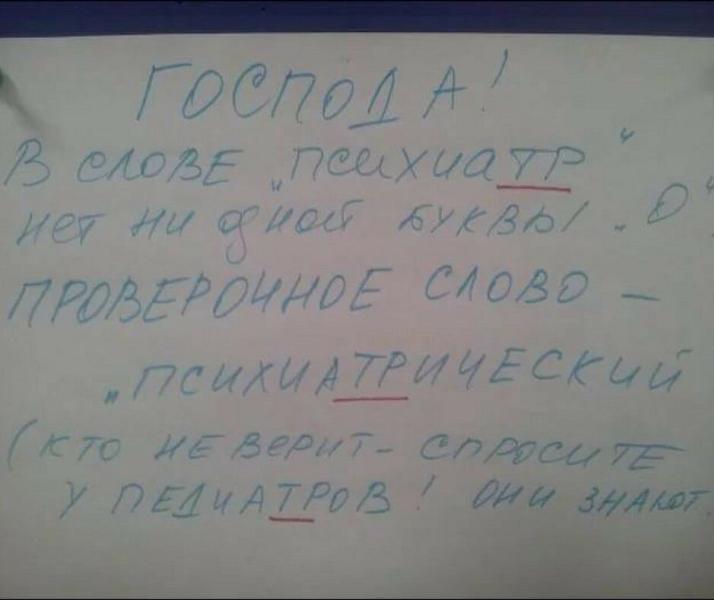 ГОСПОДА!
В СЛОВЕ „ПСИХИАТР"
НЕТ НИ ОДНОЙ БУКВЫ „О".
ПРОВЕРОЧНОЕ СЛОВО —
„ПСИХИАТРИЧЕСКИЙ
(КТО НЕ ВЕРИТ - СПРОСИТЕ
У ПЕДИАТРОВ! ОНИ ЗНАЮТ.